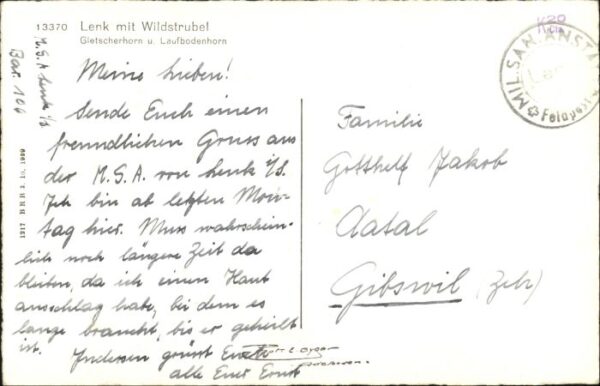 13370 Lenk mit Wildstrubel
Gletscherhorn u. Laufbodenhorn
M.S.A Lenk i/S
Bar. 100
1917 BRB 3. 10. 1939
Meine Lieben!
Sende Euch einen
freundlichen Gruss aus
der M.S.A. von Lenk i/S.
Ich bin ab letzten Mon-
tag hier. Muss wahrschein-
lich noch längere Zeit da
bleiben, da ich einen Haut
ausschlag habe, bei dem es
lange braucht, bis er geheilt
ist. Indessen grüsst Euch
alle Euer Ernst
MIL. SAN. ANSTA
Feldpost
Familie
Gotthelf Jakob
Aatal
Gibswil (Zch)